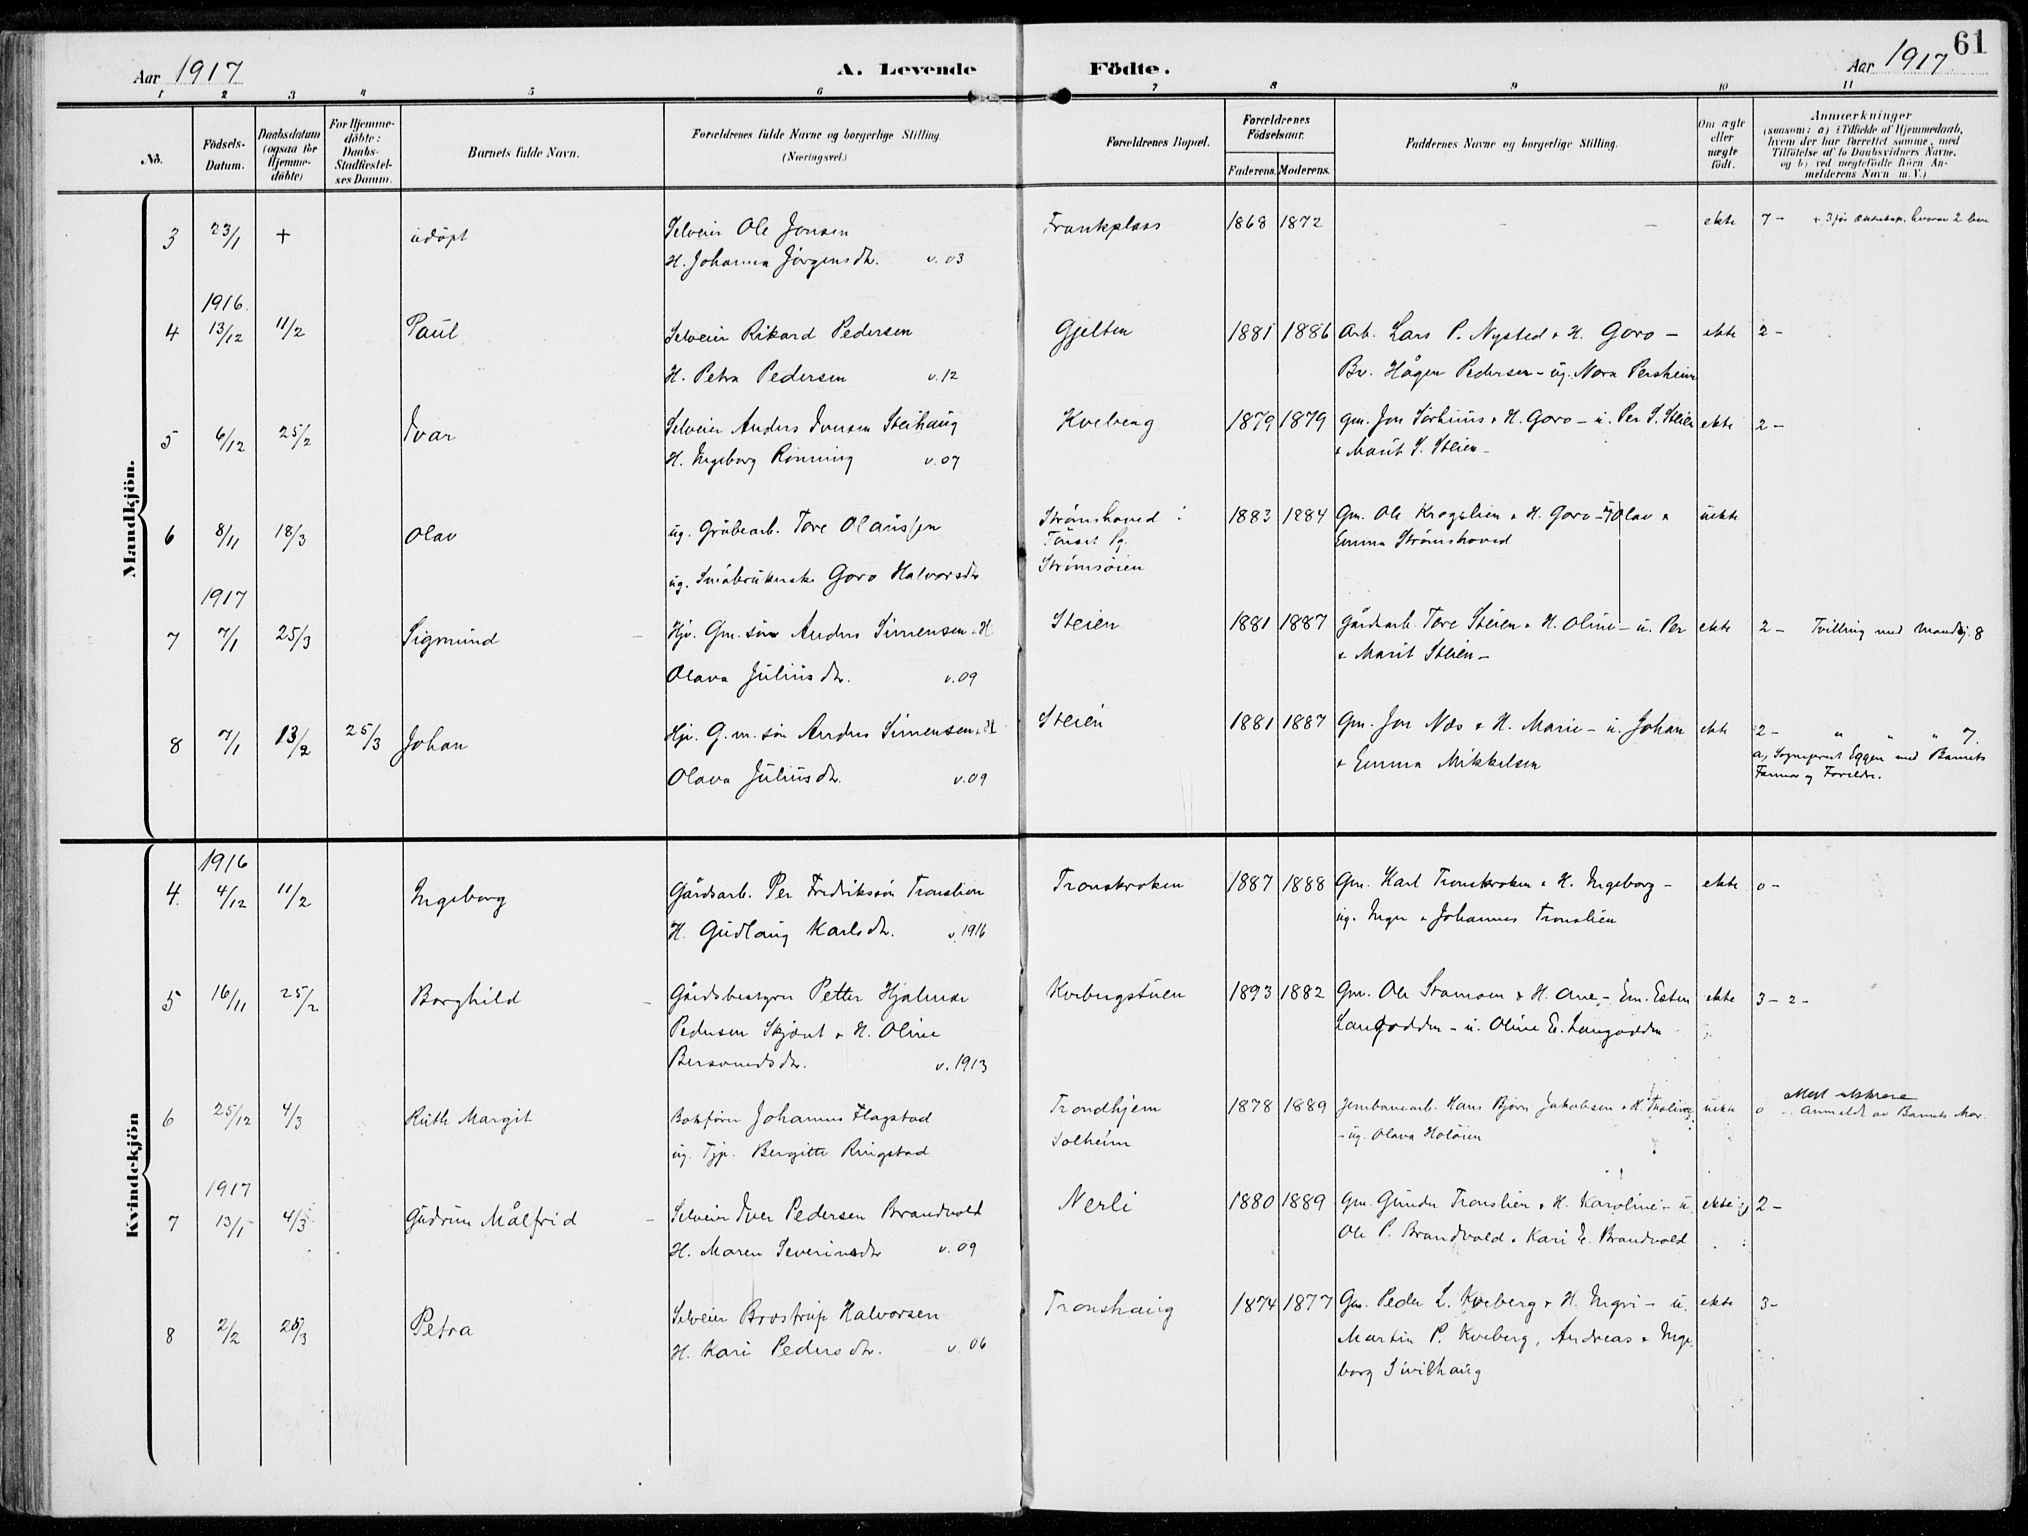 61
Aar 1917
A. Levende Födte.
Aar 1917
1 2 3 4 5 6 7 8 9 10 11
No.
Födsels-
Datum.
Daabsdatum
(ogsaa for
Hjemme-
döbte)
For Hjemme-
döbte:
Daabs-
Stadfæstel-
ses Datum.
Barnets fulde Navn.
Forældrenes fulde Navne og borgerlige Stilling.
(Næringsvei.)
Forældrenes Bopæl.
Forældrenes
Födselsaar.
Faderens. Moderens.
Faddernes Navne og borgerlige Stilling.
Om ægte
eller
uægte
født.
Anmærkninger
(saasom: a) i Tilfælde af Hjemmedaab,
hvem der har forrettet samme, med
Tilföielse af to Daabsvidners Navne,
og b) ved uægtefödte Börn An-
melderens Navn m. V.)
Mandkjön.
3 23/1 + udöpt
Selveier Ole Jonsen
H. Johanna Jörgensdtr. v. 03
Fronkplass 1868 1872 – – ekte 7 – + 3 før hvorav 2 lever
1916
4 13/12 11/2 Paul
Selveier Rikard Pedersen
H. Petra Pedersen v. 12
Gjelten 1881 1886
Arb. Lars P. Nysted & H. Goro –
Br. Hågen Pedersen – ug. Nora Persheim
ekte 2 –
5 6/12 25/2 Ivar
Selveier Anders Iversen Steihaug
H. Ingeborg Rönning v. 07
Kveberg 1879 1879
Gm. Jon Sörhuus & H. Goro – u. Per S. Steien
& Marit S. Steien –
ekte 2 –
6 8/11 18/3 Olav
ug. Grubearb. Tore Olaussen
ug. Småbrukerske Goro Halvorsdtr
Strömshoved :
Tönset Pg.
Strömsöien
1883 1884
Gm. Ole Krogslien & H. Goro – Olav &
Emma Strömshoved
uekte
1917
7 7/1 25/3 Sigmund
Hjv. Gm. sön Anders Simensen & H
Olava Juliusdtr. v. 09
Steien 1881 1887
Gårdarb. Tore Steien & H. Oline – u. Per
& Marit Steien –
ekte 2 – Tvilling med Mandkj. 8
8 7/1 13/2 25/3 Johan
Hjv. G. m. sön Anders Simensen & H
Olava Juliusdtr. v. 09
Steien 1881 1887
Gm. Jon Næs & H. Marie – u. Johan
& Emma Mikkelsen
ekte 2 – " " " 7.
a, Sogneprest Eggen med Barnets
Farmor og Forældre.
Kvindekjön
1916
4. 4/12 11/2 Ingeborg
Gårdsarb. Per Fredrikssön Tronslien
H. Gudlaug Karlsdtr. v. 1916
Tronskroken 1887 1888
Gm. Karl Tronskroken & H. Ingeborg –
ug. Inger & Johannes Tronslien
ekte 0 –
5 16/11 25/2 Borghild
Gårdsbestyrer Petter Hjalmar
Pedersen Skjönt & H. Oline
Bersvendsdtr. v. 1913
Kvebergstuen 1893 1882
Gm. Ole Stamoen & H. Ane – Em. Esten
Langodden – u. Oline E. Langodden
ekte 3 – 2 –
6 25/12 4/3 Ruth Margit
Bokförer Johannes Flagstad
ug. Tjp. Bergitte Ringstad
Trondhjem
Solheim
1878 1889
Jernbanearb. Hans Björn Jakobsen & H.
– ug. Olava Holöien
uekte 0
Anmeldt av Barnets Mor.
1917
7 13/1 4/3 Gudrun Målfrid
Selveier Iver Pedersen Brandvold
H. Maren Severinsdtr v. 09
Nerli 1880 1889
Gm. Gunder Tronslien & H. Karoline – u.
Ole P. Brandvold & Kari E. Brandvold
ekte 2 –
8 2/2 25/3 Petra
Selveier Brostrup Halvorsen
H. Kari Pedersdtr. v. 06
Tronshaug 1874 1877
Gm. Peder L. Kveberg & H. Ingri – u.
Martin P. Kveberg, Andreas & Inge-
borg Sivilhaug
ekte 3 –